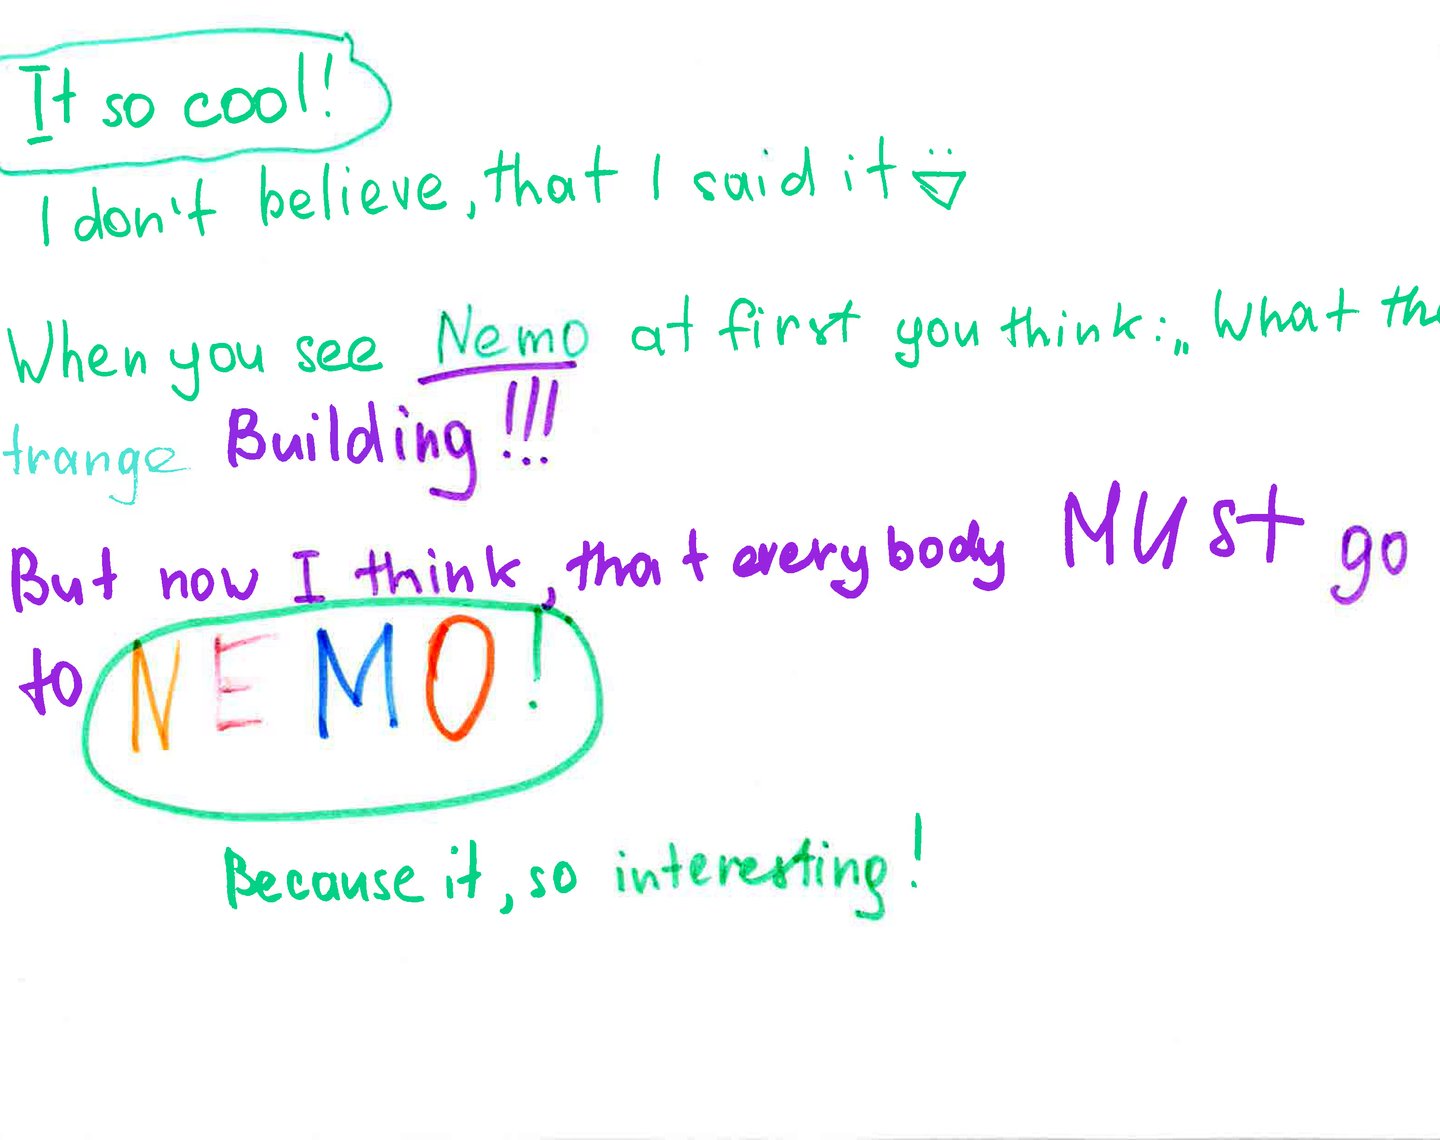 It so cool!
I don't believe, that I said it
When you see Nemo at first you think: „What the
trange Building!!!
But now I think, that everybody MUST go
to NEMO!
Because it, so interesting!